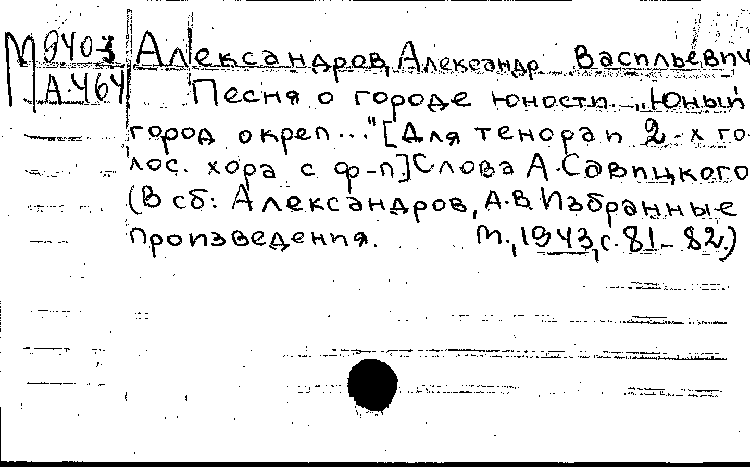 М 940-3 Александров, Александр Васильевич
А-464 Песня о городе юности. „Юный
город окреп..." [Для тенора и 2-х го-
лос. хора с ф-п] Слова А. Савицкого
(В сб: Александров, А.В. Избранные
произведения. М., 1943, с. 81-82.)